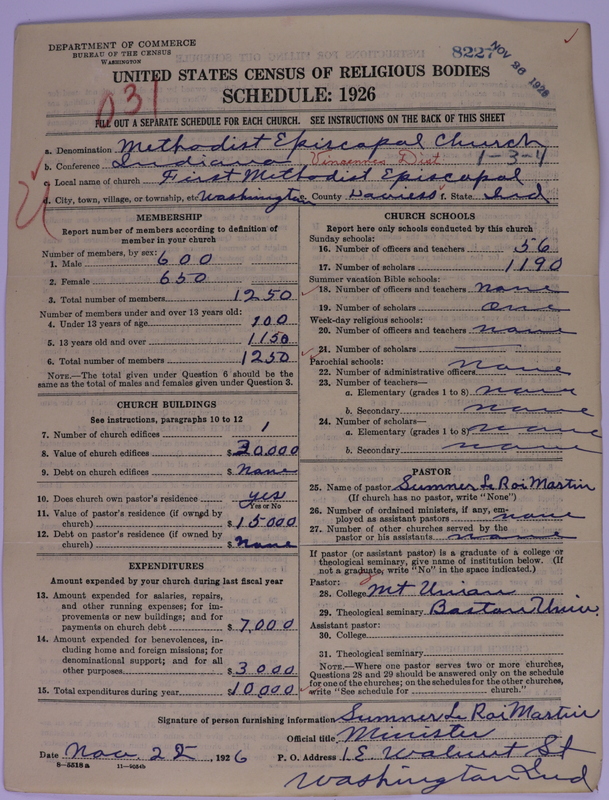 DEPARTMENT OF COMMERCE
BUREAU OF THE CENSUS
WASHINGTON
8227 NOV 26 1926
UNITED STATES CENSUS OF RELIGIOUS BODIES
SCHEDULE: 1926
031
FILL OUT A SEPARATE SCHEDULE FOR EACH CHURCH. SEE INSTRUCTIONS ON THE BACK OF THIS SHEET
a. Denomination Methodist Episcopal Church
b. Conference Indiana Vincennes Dist 1-3-4
c. Local name of church First Methodist Episcopal
d. City, town, village, or township, etc. Washington e. County Daviess f. State Ind.
MEMBERSHIP
Report number of members according to definition of
member in your church
Number of members, by sex:
1. Male 600
2. Female 650
3. Total number of members 1250
Number of members under and over 13 years old:
4. Under 13 years of age 100
5. 13 years old and over 1150
6. Total number of members 1250
NOTE.—The total given under Question 6 should be the
same as the total of males and females given under Question 3.
CHURCH BUILDINGS
See instructions, paragraphs 10 to 12
7. Number of church edifices 1
8. Value of church edifices $ 30,000
9. Debt on church edifices $ None
10. Does church own pastor's residence yes
Yes or No
11. Value of pastor's residence (if owned by
church) $ 15000
12. Debt on pastor's residence (if owned by
church) $ None
EXPENDITURES
Amount expended by your church during last fiscal year
13. Amount expended for salaries, repairs,
and other running expenses; for im-
provements or new buildings; and for
payments on church debt $ 7,000
14. Amount expended for benevolences, in-
cluding home and foreign missions; for
denominational support; and for all
other purposes $ 3000
15. Total expenditures during year $ 10,000
CHURCH SCHOOLS
Report here only schools conducted by this church
Sunday schools:
16. Number of officers and teachers 56
17. Number of scholars 1190
Summer vacation Bible schools:
18. Number of officers and teachers none
19. Number of scholars one
Week-day religious schools:
20. Number of officers and teachers none
21. Number of scholars
Parochial schools:
22. Number of administrative officers none
23. Number of teachers—
a. Elementary (grades 1 to 8) none
b. Secondary none
24. Number of scholars—
a. Elementary (grades 1 to 8) none
b. Secondary none
PASTOR
25. Name of pastor Sumner Le Roi Martin
(If church has no pastor, write "None")
26. Number of ordained ministers, if any, em-
ployed as assistant pastors none
27. Number of other churches served by the
pastor or his assistants none
If pastor (or assistant pastor) is a graduate of a college or
theological seminary, give name of institution below. (If
not a graduate, write "No" in the space indicated.)
Pastor:
28. College Mt Union
29. Theological seminary Boston Univ.
Assistant pastor:
30. College
31. Theological seminary
NOTE.—Where one pastor serves two or more churches,
Questions 28 and 29 should be answered only on the schedule
for one of the churches; on the schedules for the other churches,
write "See schedule for church."
Signature of person furnishing information Sumner Le Roi Martin
Official title Minister
Date Nov. 25, 1926 P. O. Address 1 E. Walnut St
8-5518a 11-9684b Washington Ind